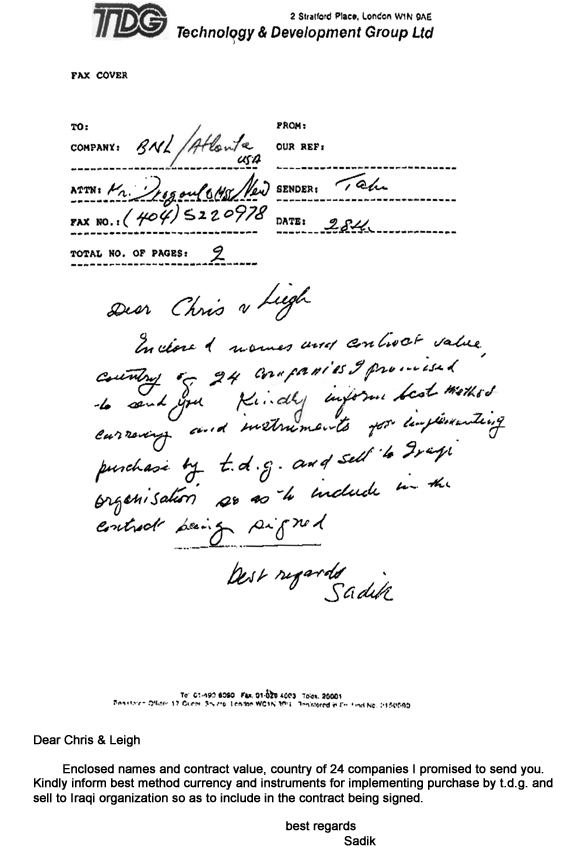 TDG
2 Stratford Place, London W1N 9AE
Technology & Development Group Ltd
FAX COVER
TO: FROM:
COMPANY: BNL/Atlanta USA OUR REF:
ATTN: Mr. Drogoul & Ms. New SENDER: Taha
FAX NO.: (404) 5220978 DATE: 28th
TOTAL NO. OF PAGES: 2
Dear Chris & Leigh
Enclosed names and contract value,
country of 24 companies I promised
to send you Kindly inform best method
currency and instruments for implementing
purchase by t.d.g. and sell to Iraqi
organisation so as to include in the
contract being signed
best regards
Sadik
Tel 01-499 6090 Fax. 01-629 4003 Telex. 25001
London WC1N Registered in
Dear Chris & Leigh
Enclosed names and contract value, country of 24 companies I promised to send you.
Kindly inform best method currency and instruments for implementing purchase by t.d.g. and
sell to Iraqi organization so as to include in the contract being signed.
best regards
Sadik